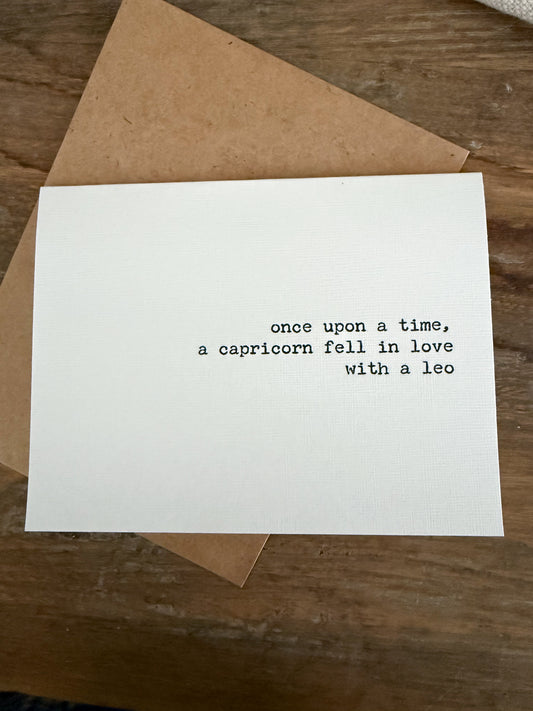 once upon a time,
a capricorn fell in love
with a leo